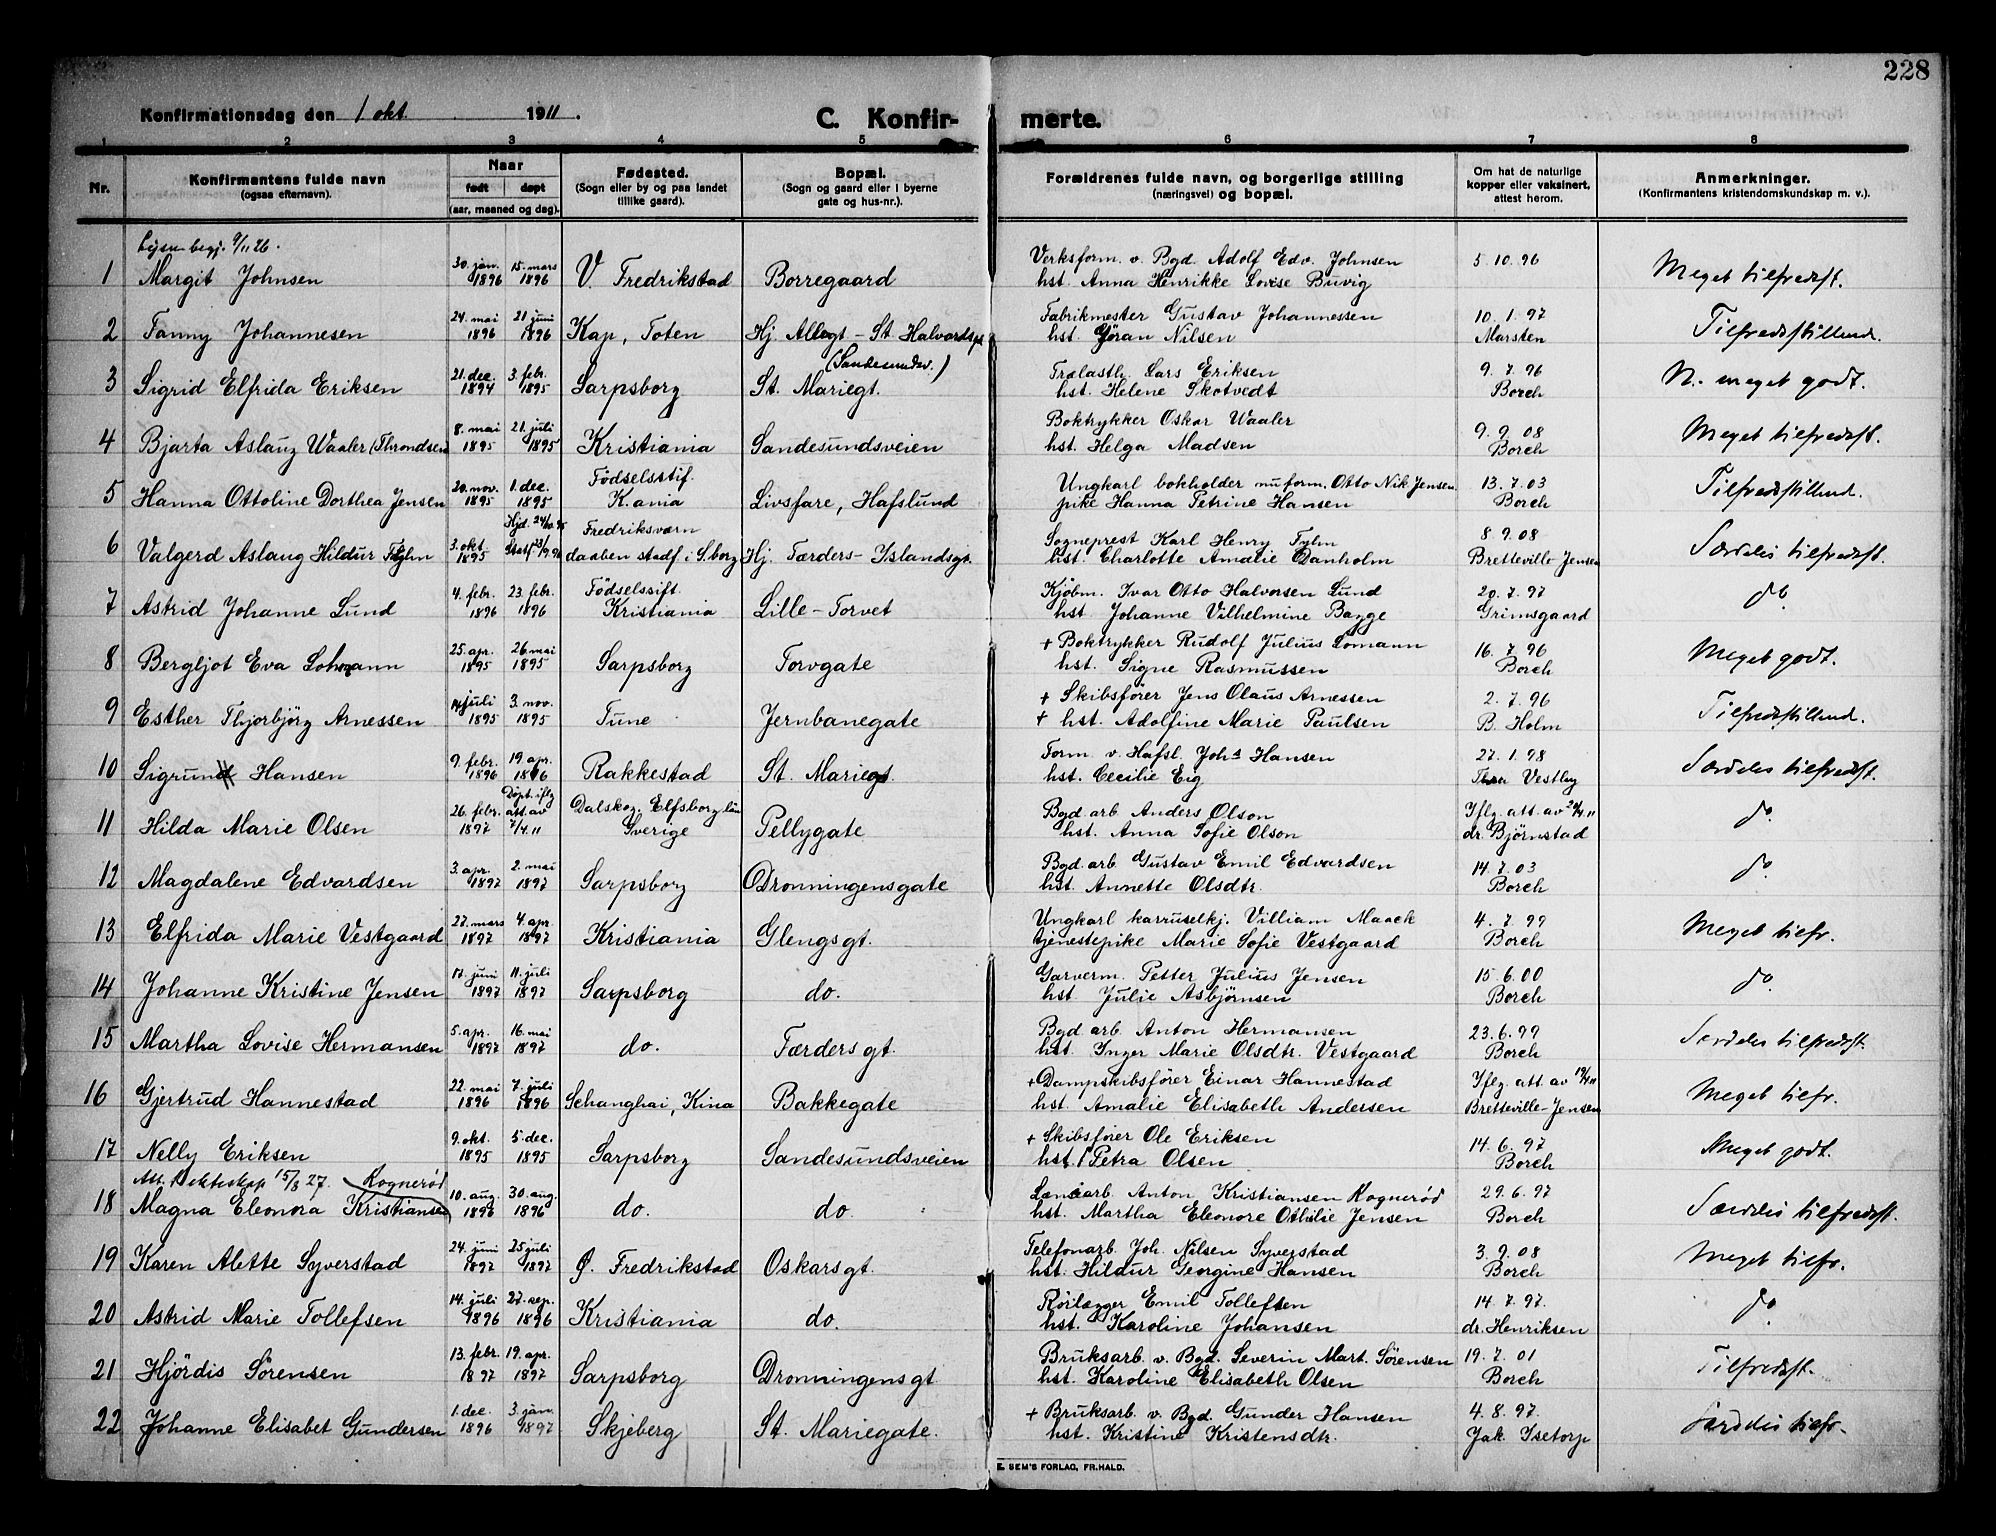 228
Konfirmationsdag den 1 okt. 1911.
C. Konfirmerte.
1 2 3 4 5 6 7 8
Nr.
Konfirmantens fulde navn
(ogsaa efternavn).
Naar
født døpt
(aar, maaned og dag).
Fødested.
(Sogn eller by og paa landet
tillike gaard).
Bopæl.
(Sogn og gaard eller i byerne
gate og hus-nr.).
Forældrenes fulde navn, og borgerlige stilling
(næringsvei) og bopæl.
Om hat de naturlige
kopper eller vaksinert,
attest herom.
Anmerkninger.
(Konfirmantens kristendomskundskap m. v.).
begj. 9/11 26.
30. jan. 15. mars Verksform. v. Bgd. Adolf Edv. Johnsen 5.10.96
1 Margit Johnsen 1896 1896 V. Fredrikstad Borregaard hst. Anna Henrikke Lovise Buvig Meget tilfredsst.
24. mai 21. juni Fabrikmester Gustav Johannessen 10.1.97
2 Fanny Johannesen 1896 1896 Kap, Toten Hj. Allégt - St. Halvordsgt hst. Göran Nilsen Marsten Tilfredsstillend.
(Sandesundsv.)
21. dec. 3. febr. Trælasth. Lars Eriksen 9.7.96
3 Sigrid Elfrida Eriksen 1894 1895 Sarpsborg St. Mariegt. hst. Helene Skotvedt Borch N. meget godt.
8. mai 21. juli Boktrykker Oskar Waaler 9.9.08
4 Bjarta Aslaug Waaler (Throndsen 1895 1895 Kristiania Sandesundsveien hst. Helga Madsen Borch Meget tilfredsst.
20. nov. 1. dec. Födselsstif. Ungkarl bokholder nu form. Otto Nik Jensen 13.7.03
5 Hanna Ottoline Dorthea Jensen 1895 1895 K.ania Livsfare, Hafslund pike Hanna Petrine Hansen Borch Tilfredsstillend.
Hjd. Fredriksværn Sogneprest Karl Henry Tylm 8.9.08
6 Valgerd Aslaug Hildur 3. okt. 1895 daaben stadf i S.borg Hj. Færders - Islandsgt. hst. Charlotte Amalie Danholm Bretteville-Jensen Særdeles tilfredsst.
4. febr. 23. febr. Födselsstift. Kjöbm. Ivar Otto Halvorsen Lund 20.7.97
7 Astrid Johanne Lund 1896 1896 Kristiania Lille-Torvet hst Johanne Vilhelmine Bagge Grimsgaard do
25. apr. 26. mai + Boktrykker Rudolf Julius Lomann 16.7.96
8 Bergljot Eva Lohmann 1895 1895 Sarpsborg Torvgate hst. Signe Rasmussen Borch Meget godt.
14 juli 3. nov. + Skibsfører Jens Olaus Arnessen 2.7.96
9 Esther Thjorbjörg Arnessen 1895 1895 Tune Jernbanegate + hst. Adolfine Marie Paulsen B. Holm Tilfredsstillend.
9. febr. 19. apr. Form. v. Hafsl. Johs Hansen 27.1.98
10 Sigrun Hansen 1896 1896 Rakkestad St. Mariegt. hst. Cecilie Eig Thea Vestby Særdeles tilfredsst.
Döpt. iflg
26. febr. att. av Dalskog, Elfsborg län Bgd. arb Anders Olson Iflg. att. av
11 Hilda Marie Olsen 1897 7/4.11 Sverige Pellygate hst. Anna Sofie Olson dr. Björnstad do
3. apr. 2. mai Bgd. arb Gustav Emil Edvardsen 14.7.03
12 Magdalene Edvardsen 1897 1897 Sarpsborg Dronningensgate hst. Annette Olsdtr. Borch do
27. mars 4. apr. Ungkarl karruselkj. Villiam Maack 4.7.99
13 Elfrida Marie Vestgaard 1897 1897 Kristiania Glengsgt. tjenestepike Marie Sofie Vestgaard Borch Meget tilfr.
17. juni 11. juli Garverm. Petter Julius Jensen 15.6.00
14 Johanne Kristine Jensen 1897 1897 Sarpsborg do. hst. Julie Asbjørnsen Borch do
5. apr. 16. mai Bgd arb Anton Hermansen 23.6.99
15 Martha Lovise Hermansen 1897 1897 do. Færdersgt. hst. Inger Marie Olsdtr. Vestgaard Borch Særdeles tilfredsst.
22. mai 7. juli + Dampskibsfører Einar Hannestad Iflg. att. av
16 Gjertrud Hannestad 1896 1896 Schanghai, Kina Bakkegate hst. Amalie Elisabeth Andersen Bretteville-Jensen Meget tilfr.
9. okt. 5. dec. + Skibsfører Ole Eriksen 14.6.97
17 Nelly Eriksen 1895 1895 Sarpsborg Sandesundsveien hst. Petra Olsen Borch Meget godt.
Att. 15/8 27. Rognerød
10. aug. 30. aug. arb. Anton Kristiansen Rognerød 29.6.97
18 Magna Eleonora Kristiansen 1896 1896 do. do. hst. Martha Eleonore Othilie Jensen Borch Særdeles tilfredsst.
24. juni 25 juli Telefonarb. Joh. Nilsen Syverstad 3.9.08
19 Karen Alette Syverstad 1897 1897 Ø. Fredrikstad Oskarsgt. hst. Hildur Georgine Hansen Borch Meget tilfr.
14. juli 27. sep. Rörlægger Emil Tollefsen 14.7.97.
20 Astrid Marie Tollefsen 1896 1896 Kristiania do. hst. Karoline Johansen dr. Henriksen do
13. febr. 19. apr. Bruksarb. v. Bgd. Severin Mart. Sörensen 19.7.01
21 Hjördis Sörensen 1897 1897 Sarpsborg Dronningensgt. hst. Karoline Elisabeth Olsen Borch Tilfredsst.
1. dec. 3. jan. + Bruksarb. v. Bgd. Gunder Hansen 4.8.97.
22 Johanne Elisabet Gundersen 1896 1897 Skjeberg St. Mariegate. hst. Kristine Kristensdtr. Jak. Isetorp Særdeles tilfr.
E. SEM'S FORLAG, FR.HALD.